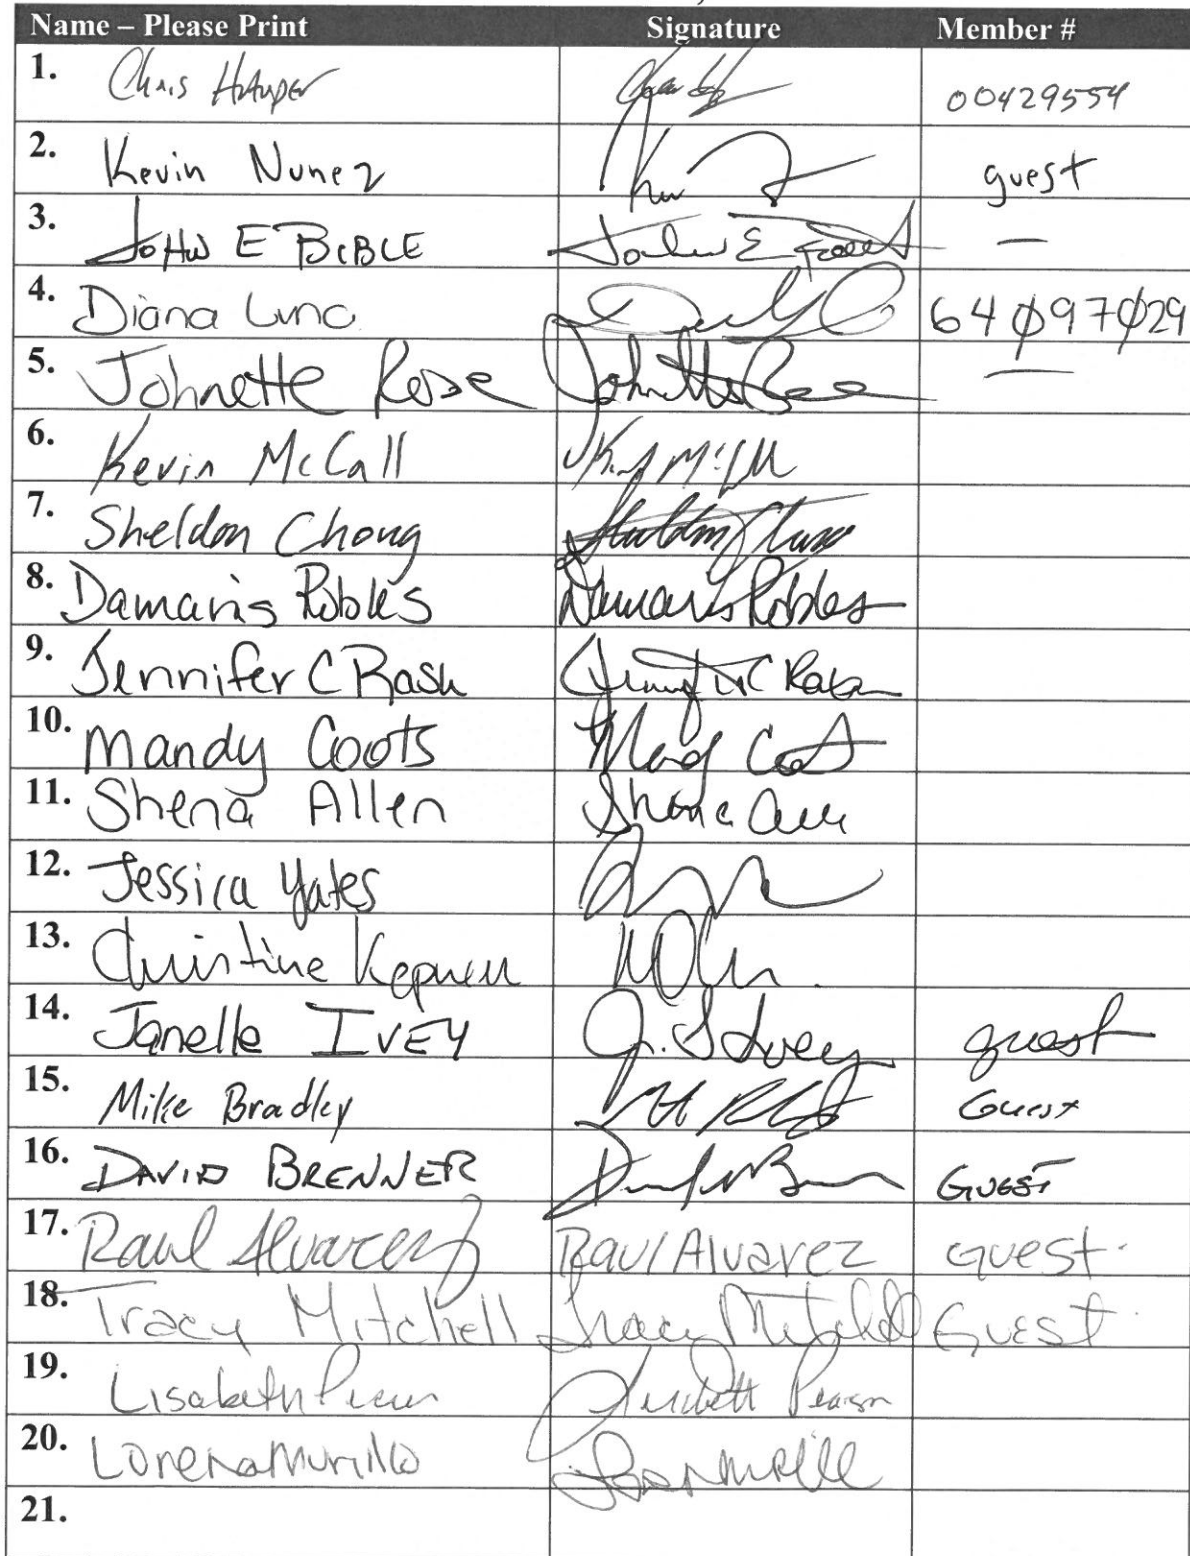 Name – Please Print Signature Member #
1. Chris Harper 00429554
2. Kevin Nunez guest
3. JOHN E BIBLE —
4. Diana Luna 64097029
5. Johnette Rose Johnette Rose —
6. Kevin McCall
7. Sheldon Chong
8. Damaris Robles Damaris Robles
9. Jennifer C Rash
10. Mandy Coots
11. Shena Allen
12. Jessica Yates
13. Christine
14. Janelle IVEY J. Ivey guest
15. Mike Bradley Guest
16. DAVID BRENNER GUEST
17. Raul Alvarez Raul Alvarez Guest.
18. Tracy Mitchell Tracy Mitchell Guest.
19. Lisabeth Pearson
20. Lorena Murillo
21.